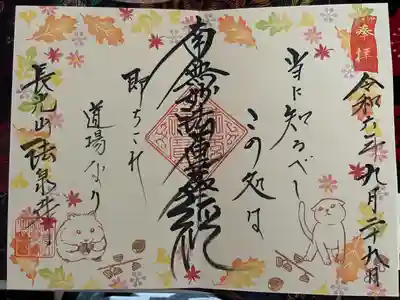 奉拝
令和六年九月二十九日
当に知るべし
この処は
南無妙法蓮華経
即ちこれ
道場なり
長九山
法泉寺